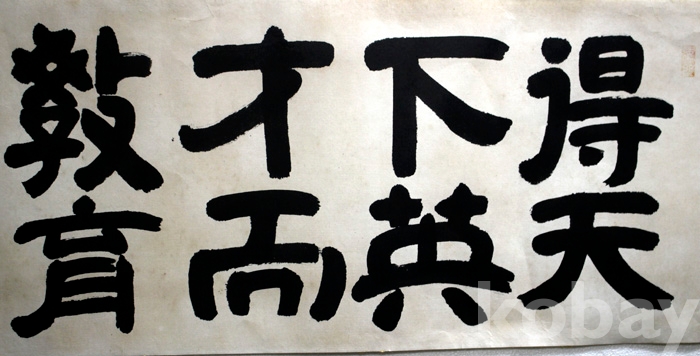 得天
下英
才而
教育
kobay